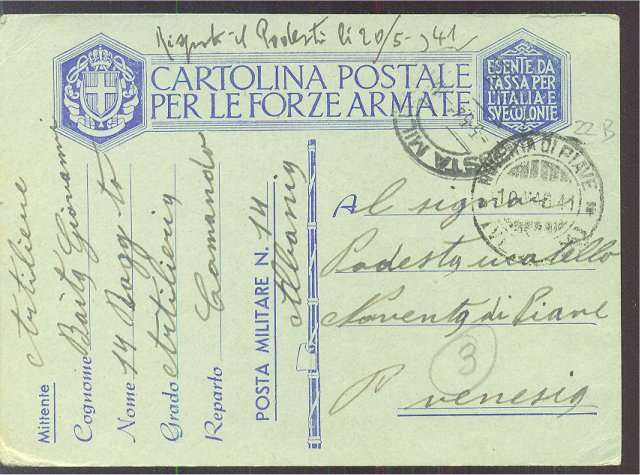 Risposto il Podestà li 20/5-941
CARTOLINA POSTALE
PER LE FORZE ARMATE
ESENTE DA
TASSA PER
L'ITALIA E
SUE COLONIE
22 B
POSTA MIL
NOVENTA DI PIAVE
Mittente Artiliere
Cognome Baita Giovanni
Nome 14 Ragg to
Grado Artilieria
Reparto Comando
POSTA MILITARE N. 14
Albania
Al signor
Podesta
Noventa di Piave
P venesia
3